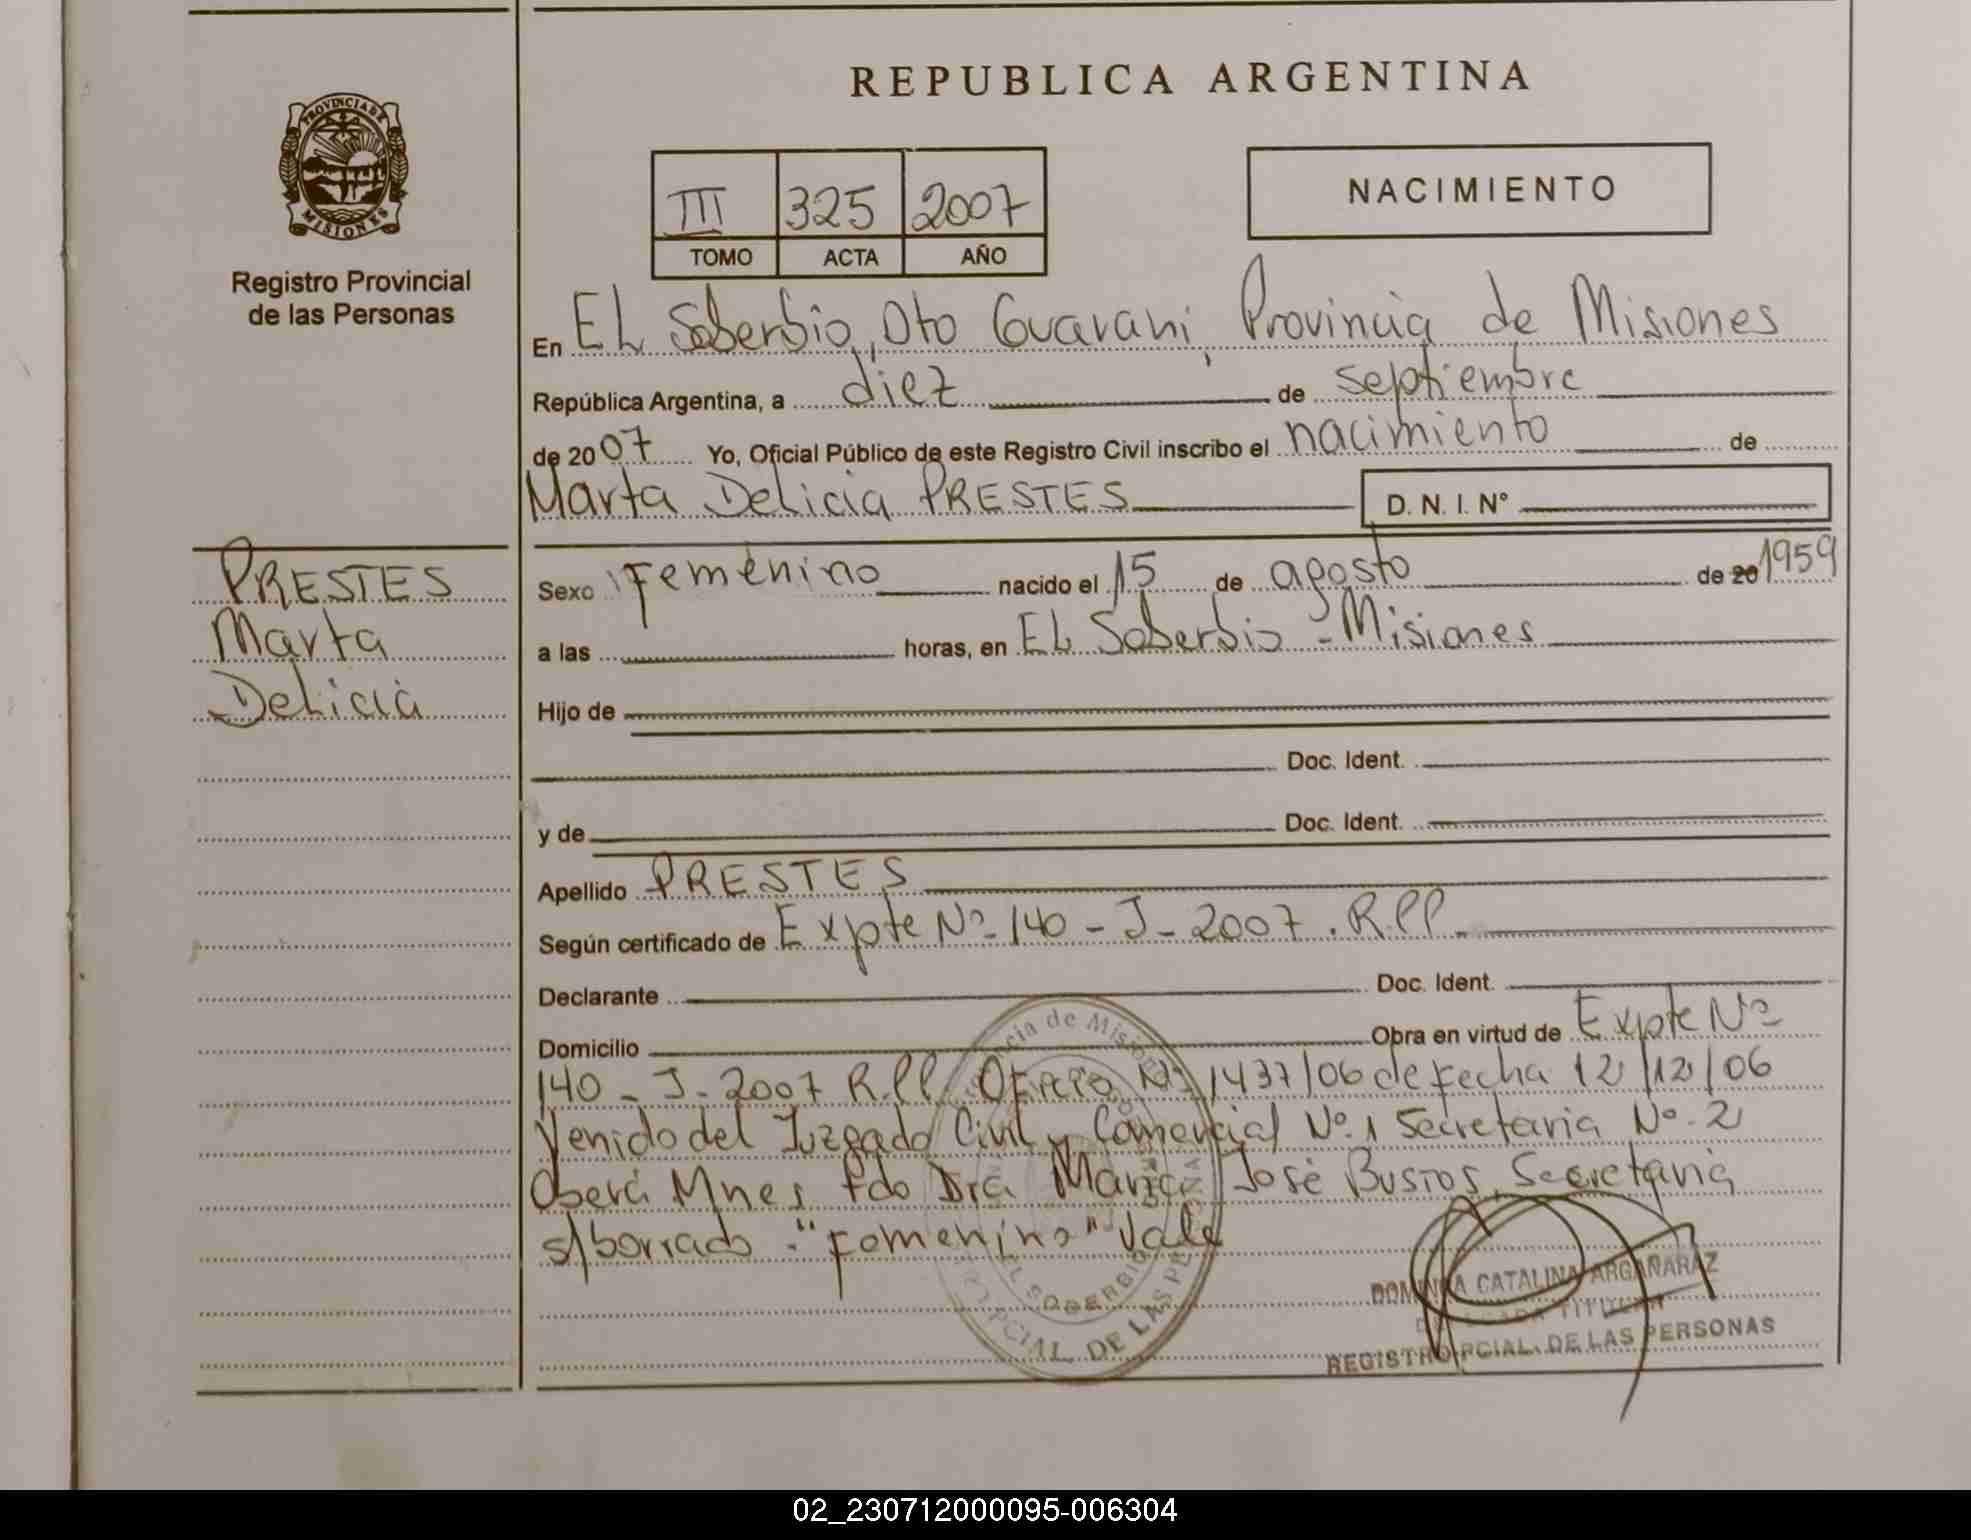 REPUBLICA ARGENTINA
PROVINCIA DE
MISIONES
Registro Provincial
de las Personas
III 325 2007
TOMO ACTA AÑO
NACIMIENTO
En EL Soberbio, Dto Guarani, Provincia de Misiones
República Argentina, a diez de septiembre
de 2007 Yo, Oficial Público de este Registro Civil inscribo el nacimiento de
Marta Delicia PRESTES D. N. I. N°
PRESTES
Marta
Delicia
Sexo Femenino nacido el 15 de agosto de 20 1959
a las horas, en EL Soberbio - Misiones
Hijo de
Doc. Ident.
y de Doc. Ident.
Apellido PRESTES
Según certificado de Expte Nº 140 - J - 2007 . R.P.P.
Declarante Doc. Ident.
Domicilio Obra en virtud de Expte Nº
140 - J - 2007 R.P.P. Oficio Nº 1437/06 de fecha 12/12/06
Venido del Juzgado Civil y Comercial Nº 1 Secretaria Nº 2
Oberá Mnes fdo Dra Maria José Bustos, Secretaria
s/borrado "Femenino" Vale
Provincia de Misiones
EL SOBERBIO
PCIAL. DE LAS PERSONAS
DOMINGA CATALINA ARGAÑARAZ
TITULAR
REGISTRO PCIAL. DE LAS PERSONAS
02_230712000095-006304